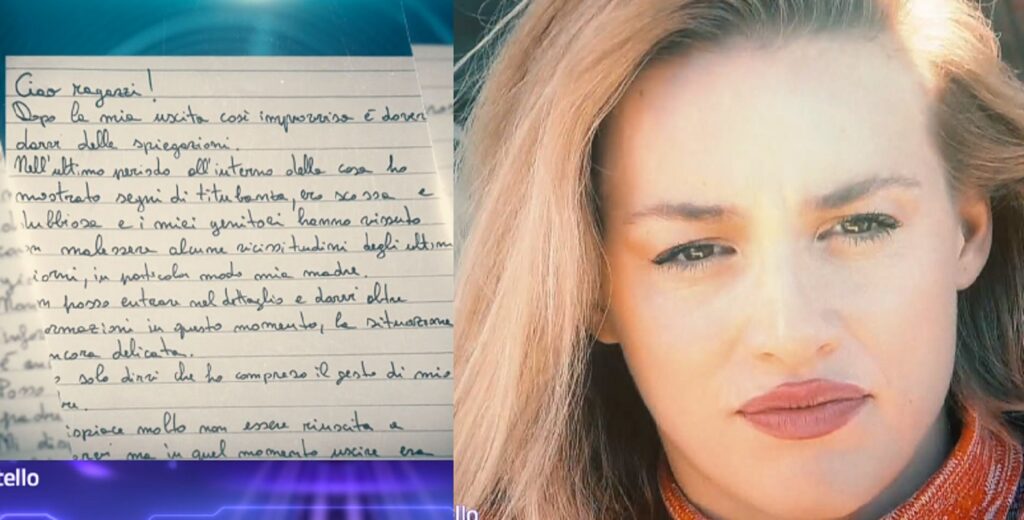 Ciao ragazzi!
Dopo la mia uscita così improvvisa è dover
darvi delle spiegazioni.
Nell'ultimo periodo all'interno della casa ho
mostrato segni di titubanza, ero scossa e
dubbiosa e i miei genitori hanno vissuto
malessere alcune vicissitudini degli ultimi
iorni, in particola modo mia madre.
posso entrare nel dettaglio e darvi altre
ormazioni in questo momento, la situazione
ncora delicata.
solo dirvi che ho compreso il gesto di mio
re.
ispiace molto non essere riuscita a
ma in quel momento uscire era
tello
llo